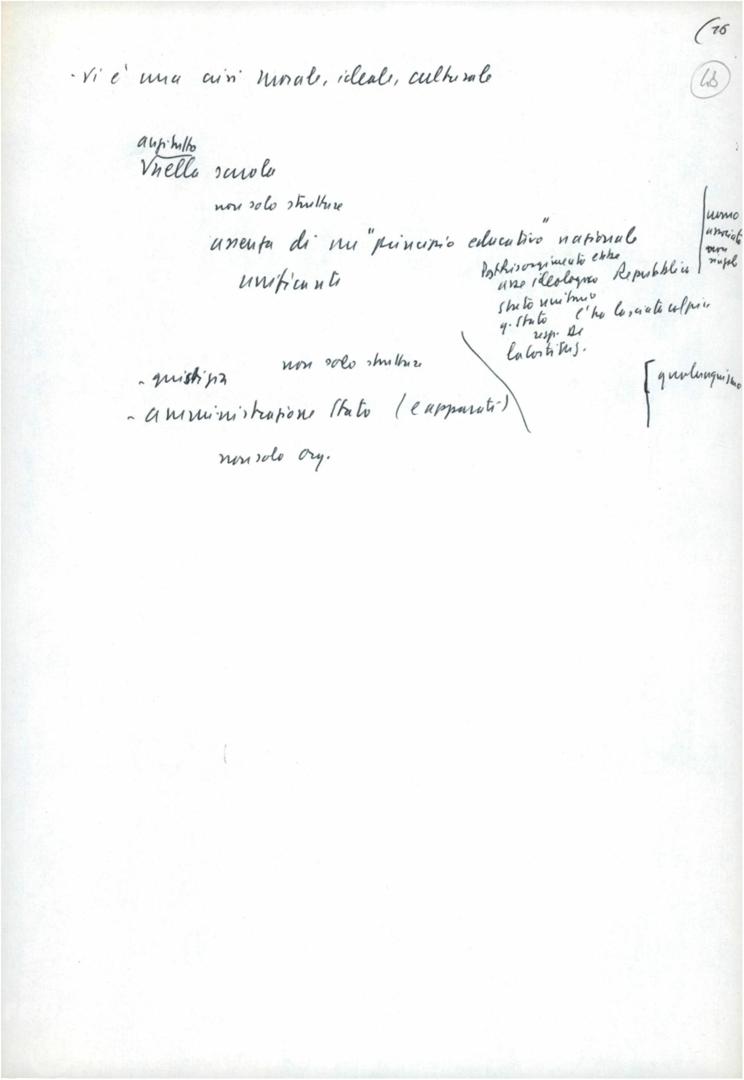 (16
48
- Vi è una crisi morale, ideale, culturale
anzitutto
nella scuola
non solo strutture
assenza di un "principio educativo" nazionale
unificante
Post Risorgimento ebbe
asse ideologico Repubblica
stato unitario
q. Stato l'ha lasciato
resp. DC
la Costituz.
uomo
associato
non solo strutture
- giustizia
- amministrazione Stato (e apparati)
non solo org.
qualunquismo